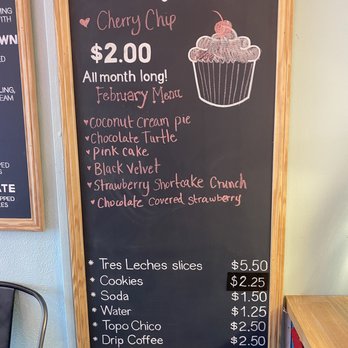 ♥ Cherry Chip
$2.00
All month long!
February Menu
♥Coconut Cream pie
♥Chocolate Turtle
♥Pink Cake
♥Black Velvet
♥Strawberry Shortcake Crunch
♥Chocolate covered strawberry
* Tres Leches slices $5.50
* Cookies $2.25
* Soda $1.50
* Water $1.25
* Topo Chico $2.50
* Drip Coffee $2.50